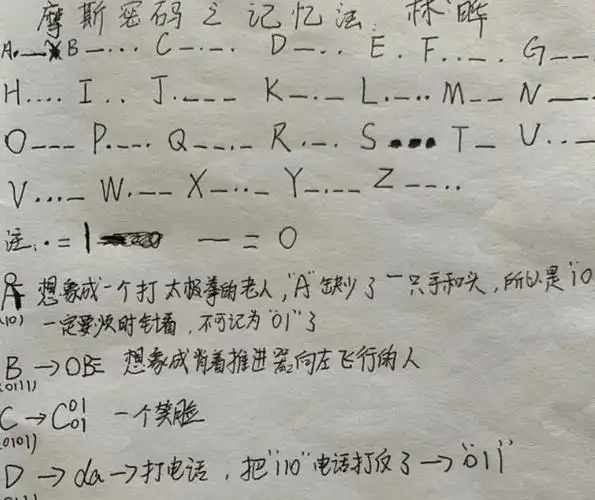 摩斯密码之记忆法 林晔
A.— B—... C—.—. D—.. E. F..—. G——
H.... I.. J.——— K—.— L.—.. M—— N—
O——— P.——. Q——.— R.—. S... T— U..—
V...— W.—— X—..— Y—.—— Z——..
注:·=1 —=0
A 想象成一个打太极拳的老人,"A"缺少了一只手和头,所以是"10
(10) 一定要顺时针看,不可记为"01"了
B→OB 想象成背着推进器向左飞行的人
(0111)
C→C01 01 一个笑脸
(0101)
D→da→打电话,把"110"电话打反了→"011"